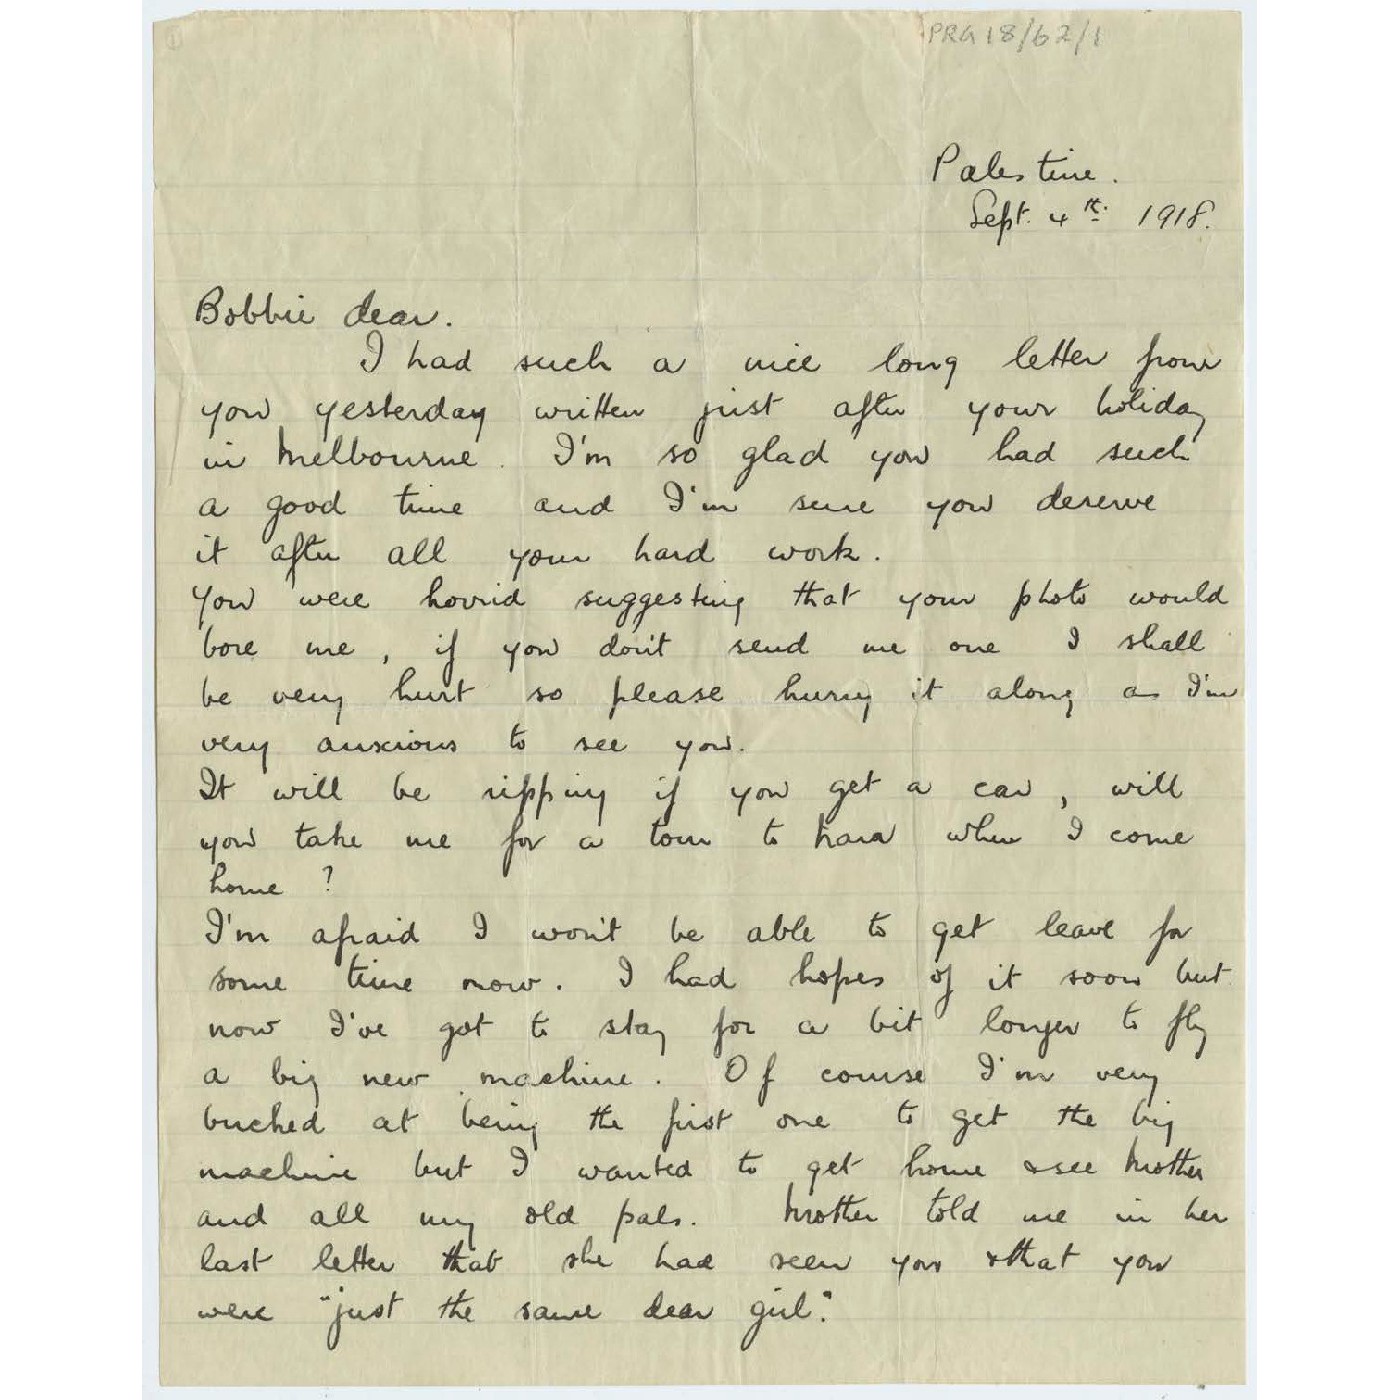 PRG 18/62/1
Palestine.
Sept. 4th. 1918.
Bobbie dear.
I had such a nice long letter from
you yesterday written just after your holiday
in Melbourne. I'm so glad you had such
a good time and I'm sure you deserve
it after all your hard work.
You were horrid suggesting that your photo would
bore me, if you don't send me one I shall
be very hurt so please hurry it along as I'm
very anxious to see you.
It will be ripping if you get a car, will
you take me for a tour to when I come
home?
I'm afraid I won't be able to get leave for
some time now. I had hopes of it soon but
now I've got to stay for a bit longer to fly
a big new machine. Of course I'm very
bucked at being the first one to get the big
machine but I wanted to get home & see Mother
and all my old pals. Mother told me in her
last letter that she had seen you & that you
were "just the same dear girl".